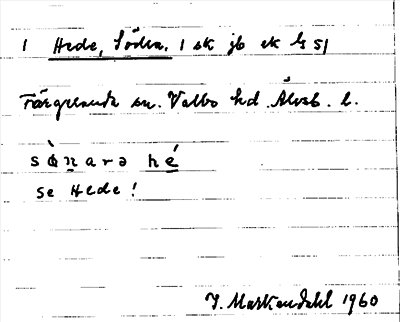 1 Hede, Södra. 1 sk jb ek ls 51
Färgelanda sn. Valbo hd. Älvsb. l.
sö̀n̲arə hé̲
se Hede!
J. Markendahl 1960